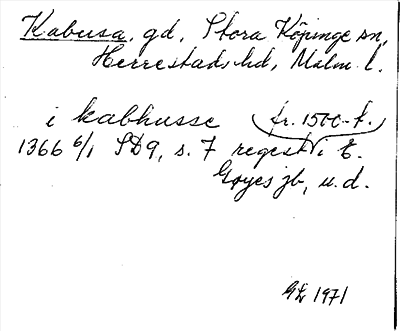 Kabusa, gd, Stora Köpinge sn,
Herrestads hd, Malm. l.
i kabhusse (fr. 1500-t.)
1366 6/1 SD9, s. 7 regest i E.
Goyes jb, u.d.
GL 1971